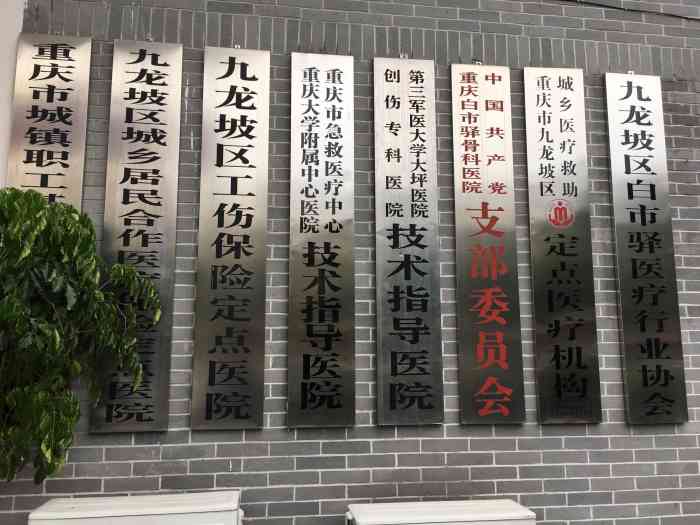 重庆市城镇职工
九龙坡区城乡居民合作医疗保险定点医院
九龙坡区工伤保险定点医院
重庆市急救医疗中心
重庆大学附属中心医院
技术指导医院
第三军医大学大坪医院
创伤专科医院
技术指导医院
中国共产党
重庆白市驿骨科医院
支部委员会
城乡医疗救助
重庆市九龙坡区
定点医疗机构
九龙坡区白市驿医疗行业协会